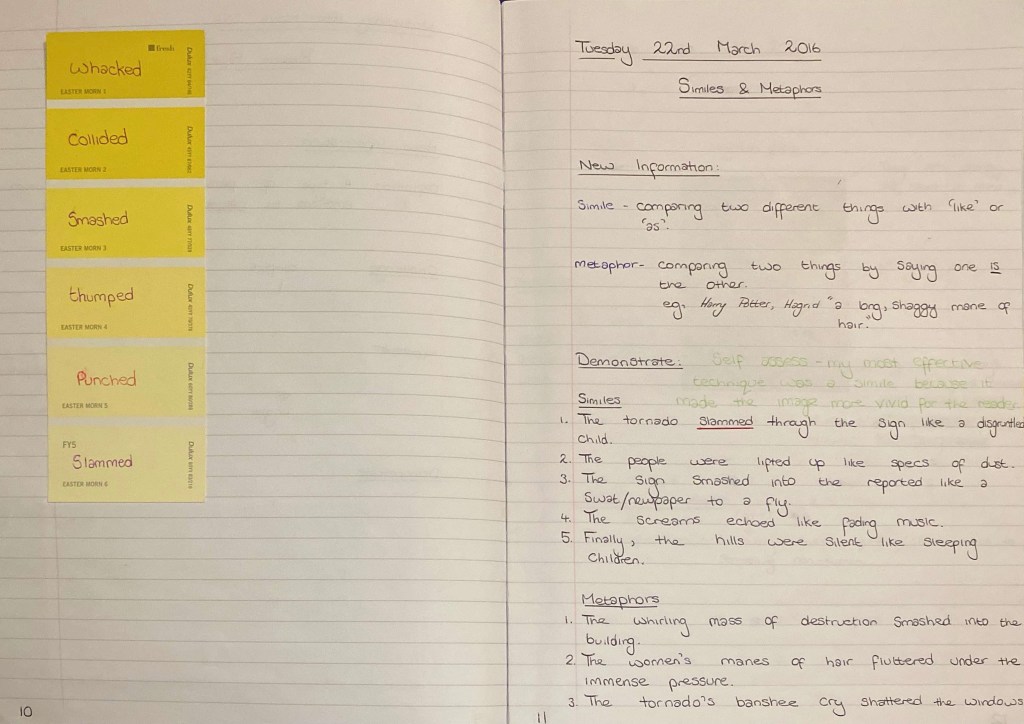 fresh
Whacked
EASTER MORN 1
Collided
EASTER MORN 2
Smashed
EASTER MORN 3
thumped
EASTER MORN 4
Punched
EASTER MORN 5
FYS
Slammed
EASTER MORN 6
10
Tuesday 22nd March 2016
Similes & Metaphors
New Information:
Simile - comparing two different things with 'like' or
'as'.
metaphor- comparing two things by saying one is
the other.
eg. Harry Potter, Hagrid "a long, shaggy mane of
hair."
Demonstrate: Self assess - my most effective
technique was a simile because it
made the image more vivid for the reader
Similes
1. The tornado slammed through the sign like a disgruntled
child.
2. The people were lifted up like specs of dust.
3. The sign smashed into the reported like a
swat/newpaper to a fly.
4. The screams echoed like fading music.
5. Finally, the hills were silent like sleeping
children.
Metaphors
1. The whirling mass of destruction smashed into the
building.
2. The women's manes of hair fluttered under the
immense pressure.
3. The tornado's banshee cry shattered the windows
11